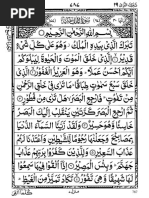 بِسْمِ اللهِ الرَّحْمٰنِ الرَّحِيْمِ
تَبٰرَكَ الَّذِيْ بِيَدِهِ الْمُلْكُ وَهُوَ عَلٰى كُلِّ شَيْءٍ
قَدِيْرُ الَّذِيْ خَلَقَ الْمَوْتَ وَالْحَيٰوةَ لِيَبْلُوَكُمْ
اَيُّكُمْ اَحْسَنُ عَمَلًا وَهُوَ الْعَزِيْزُ الْغَفُوْرُ الَّذِيْ
خَلَقَ سَبْعَ سَمٰوٰتٍ طِبَاقًا مَا تَرٰى فِيْ خَلْقِ الرَّحْمٰنِ
مِنْ تَفٰوُتٍ فَارْجِعِ الْبَصَرَ هَلْ تَرٰى مِنْ فُطُوْرٍ ثُمَّ
ارْجِعِ الْبَصَرَ كَرَّتَيْنِ يَنْقَلِبْ اِلَيْكَ الْبَصَرُ خَاسِئًا
وَّهُوَ حَسِيْرٌ وَلَقَدْ زَيَّنَّا السَّمَآءَ الدُّنْيَا
بِمَصَابِيْحَ وَجَعَلْنٰهَا رُجُوْمًا لِّلشَّيٰطِيْنِ وَاَعْتَدْنَا لَهُمْ
عَذَابَ السَّعِيْرِ وَلِلَّذِيْنَ كَفَرُوْا بِرَبِّهِمْ عَذَابُ
جَهَنَّمَ وَبِئْسَ الْمَصِيْرُ اِذَآ اُلْقُوْا فِيْهَا سَمِعُوْا لَهَا
شَهِيْقًا وَّهِيَ تَفُوْرُ تَكَادُ تَمَيَّزُ مِنَ الْغَيْظِ